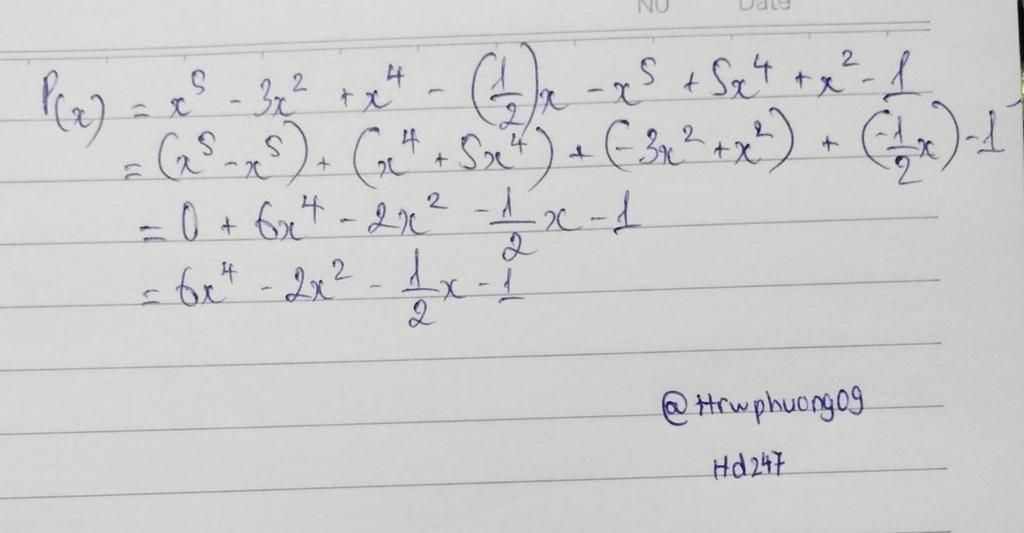 No Date
P(x) = x⁵ - 3x² + x⁴ - (1/2)x - x⁵ + 5x⁴ + x² - 1
= (x⁵ - x⁵) + (x⁴ + 5x⁴) + (-3x² + x²) + (-1/2 x) - 1
= 0 + 6x⁴ - 2x² - 1/2 x - 1
= 6x⁴ - 2x² - 1/2 x - 1
@Hrwphuong09
Hd247